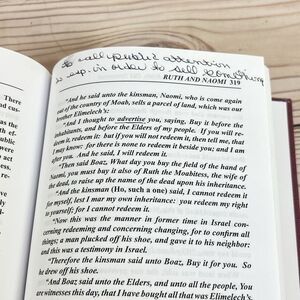 to call public attention
to esp. in order to sell something
RUTH AND NAOMI 319
"And he said unto the kinsman, Naomi, who is come again
out of the country of Moab, sells a parcel of land, which was our
brother Elimelech's:
"And I thought to advertise you, saying, Buy it before the
inhabitants, and before the Elders of my people. If you will re-
deem it, redeem it: but if you will not redeem it, then tell me, that
I may know: for there is none to redeem it beside you; and I am
after you. And he said, I will redeem it.
"Then said Boaz, What day you buy the field of the hand of
Naomi, you must buy it also of Ruth the Moabitess, the wife of
the dead, to raise up the name of the dead upon his inheritance.
"And the kinsman (Ho, such a one) said, I cannot redeem it
for myself, lest I mar my own inheritance: you redeem my right
to yourself; for I cannot redeem it.
"Now this was the manner in former time in Israel con-
cerning redeeming and concerning changing, for to confirm all
things; a man plucked off his shoe, and gave it to his neighbor:
and this was a testimony in Israel.
"Therefore the kinsman said unto Boaz, Buy it for you. So
he drew off his shoe.
"And Boaz said unto the Elders, and unto all the people, You
are witnesses this day, that I have bought all that was Elimelech's
There